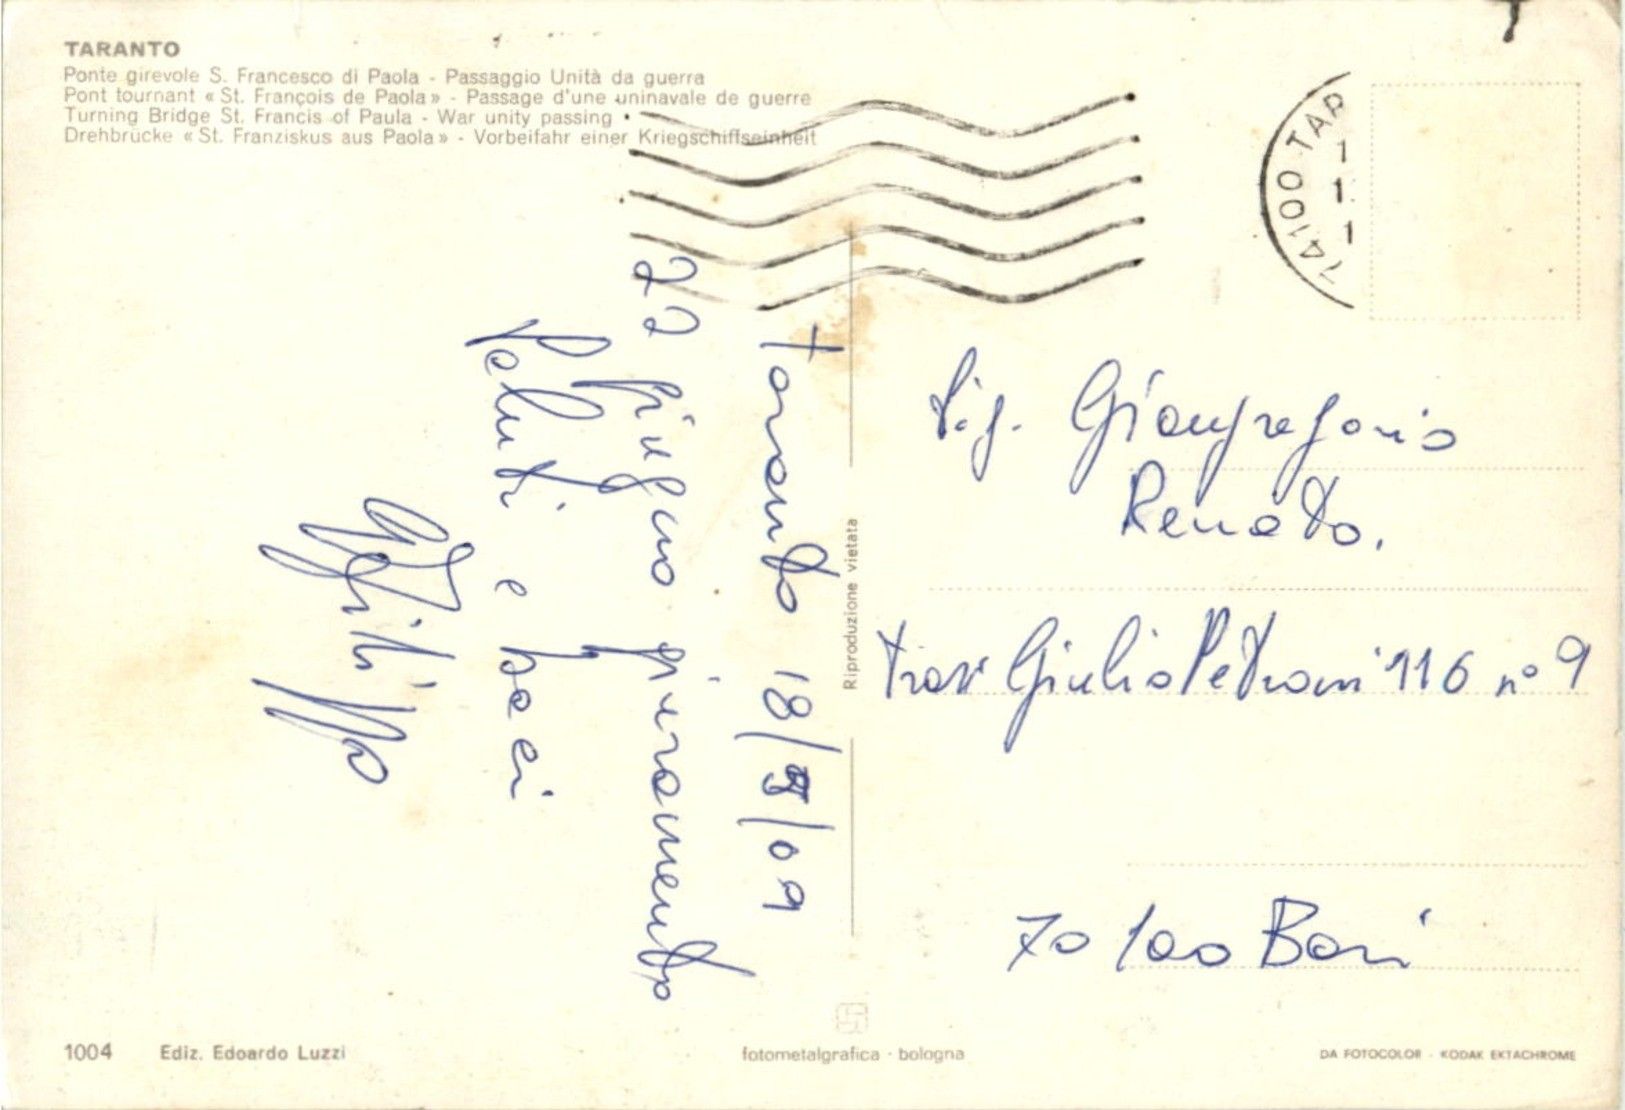 TARANTO
Ponte girevole S. Francesco di Paola - Passaggio Unità da guerra
Pont tournant « St. François de Paola » - Passage d'une uninavale de guerre
Turning Bridge St. Francis of Paula - War unity passing
Drehbrücke « St. Franziskus aus Paola » - Vorbeifahr einer Kriegschiffseinheit
74100 TAR
1
1
1
Taranto 18/5/09
22 giugno giuramento
Saluti e baci
Riproduzione vietata
Sig. Giangregorio
Renato.
Trav Giulio Petroni 116 n° 9
70100 Bari
1004 Ediz. Edoardo Luzzi
fotometalgrafica - bologna
DA FOTOCOLOR - KODAK EKTACHROME